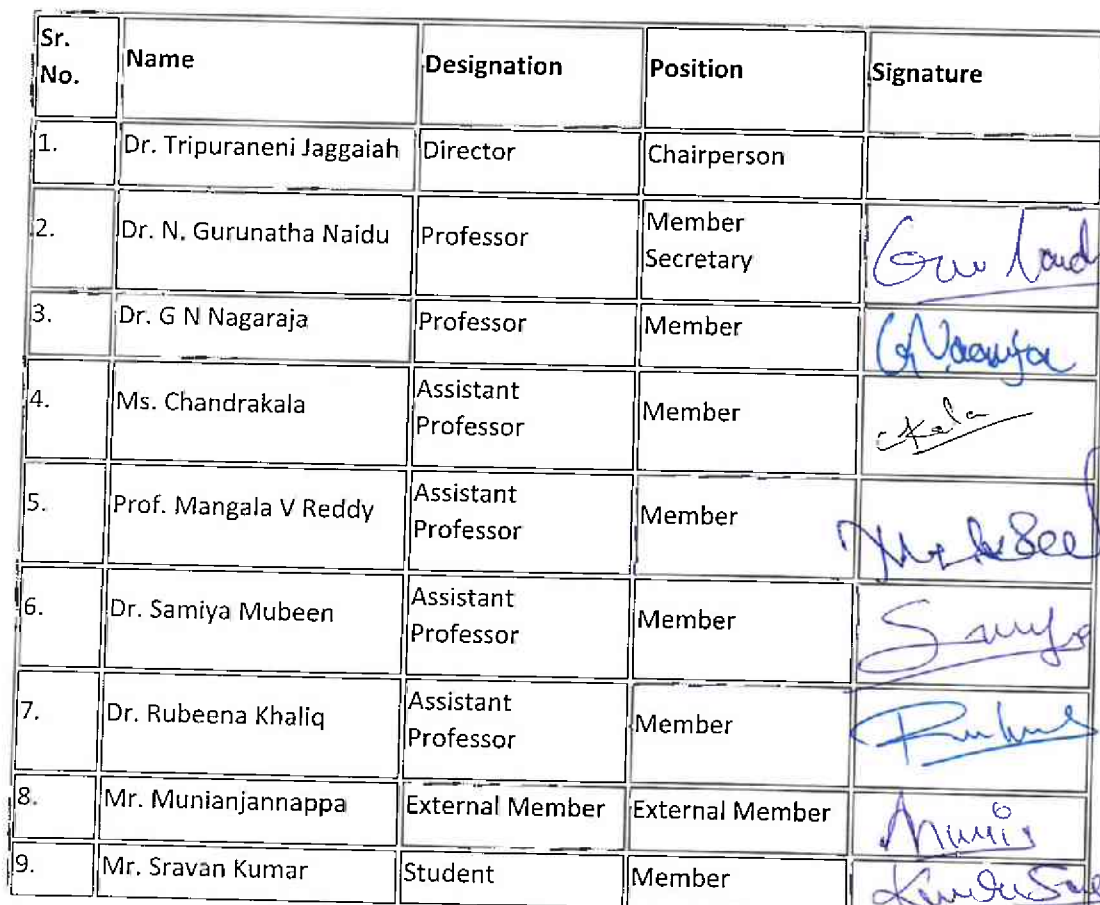 Sr. No. Name Designation Position Signature
1. Dr. Tripuraneni Jaggaiah Director Chairperson
2. Dr. N. Gurunatha Naidu Professor Member Secretary
3. Dr. G N Nagaraja Professor Member
4. Ms. Chandrakala Assistant Professor Member Kala
5. Prof. Mangala V Reddy Assistant Professor Member
6. Dr. Samiya Mubeen Assistant Professor Member
7. Dr. Rubeena Khaliq Assistant Professor Member
8. Mr. Munianjannappa External Member External Member
9. Mr. Sravan Kumar Student Member